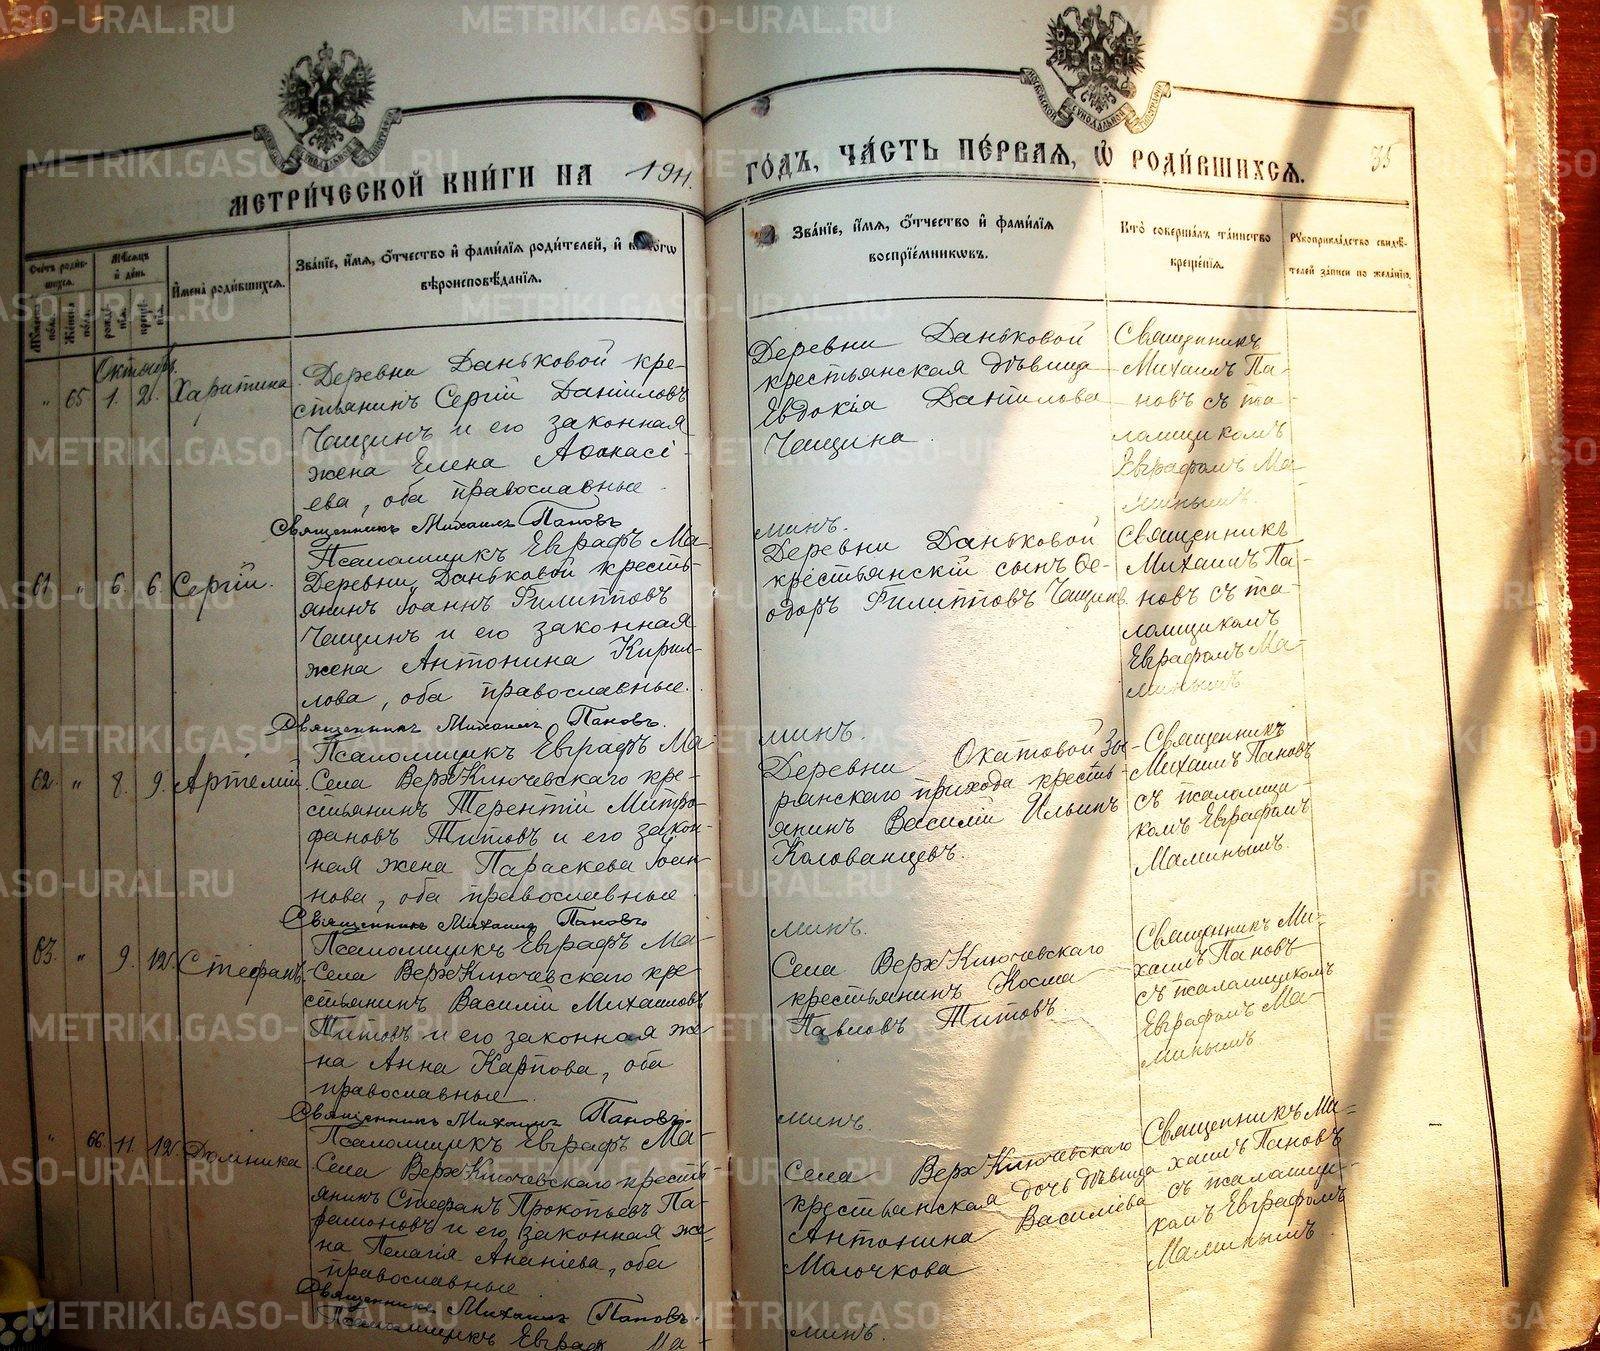 МЕТРИ́ЧЕСКОЙ КНИ́ГИ НА 1911.
ГО́ДЪ, ЧА́СТЬ ПЕ́РВАЯ, Ѡ РОДИ́ВШИХСѦ.
Счетъ роди́вшихсѧ.
Мꙋжеска пола.
Женска пола.
Мѣсяцъ и де́нь
рожденїѧ.
крещенїѧ.
И҆мена̀ роди́вшихсѧ.
Зва́нїе, и҆́мѧ, Ѻ҆́тчество и҆ фами́лїѧ роди́телей, и҆ ко́тогѡ
вѣроисповѣ́данїѧ.
Зва́нїе, и҆́мѧ, Ѻ҆́тчество и҆ фами́лїѧ
воспрїе́мникѡвъ.
Кто̀ соверша́лъ та́инство
креще́нїѧ.
Рꙋкоприкла́дство свидѣ́-
телей за́писи по жела́нїю.
Октябрь
" 65 1. 2. Харитина
Деревни Даньковой кре-
стьянинъ Сергій Даніиловъ
Чащинъ и его законная
жена Елена Аѳанасі-
ева, оба православные.
Священникъ Михаилъ Пановъ
Псаломщикъ Евграфъ Ма-
минъ.
Деревни Даньковой
крестьянская дѣвица
Евдокія Даніилова
Чащина.
Священникъ
Михаилъ Па-
новъ съ пса-
ломщикомъ
Евграфомъ Ма-
минымъ.
61 " 6. 6. Сергій.
Деревни Даньковой кресть-
янинъ Іоаннъ Филипповъ
Чащинъ и его законная
жена Антонина Кирил-
лова, оба православные.
Священникъ Михаилъ Пановъ.
Псаломщикъ Евграфъ Ма-
минъ.
Деревни Даньковой
крестьянскій сынъ Ѳе-
одоръ Филипповъ Чащинъ.
Священникъ
Михаилъ Па-
новъ съ пса-
ломщикомъ
Евграфомъ Ма-
минымъ
62. " 8. 9. Артемій.
Села ВерхКлючевскаго кре-
стьянинъ Терентій Митро-
фановъ Титовъ и его закон-
ная жена Параскева Іоан-
нова, оба православные
Священникъ Михаилъ Пановъ
Псаломщикъ Евграфъ Ма-
минъ.
Деревни Окатовой
прихода кресть-
янинъ Василій Ильинъ
Колованцевъ.
Священникъ
Михаилъ Пановъ
съ псаломщи
комъ Евграфомъ
Маминымъ.
63. " 9. 12. Стефанъ.
Села ВерхКлючевскаго кре-
стьянинъ Василій Михаиловъ
Титовъ и его законная же-
на Анна Карпова, оба
православные.
Священникъ Михаилъ Пановъ.
Псаломщикъ Евграфъ Ма-
минъ.
Села ВерхКлючевскаго
крестьянинъ Косма
Павловъ Титовъ.
Священникъ Ми-
хаилъ Пановъ
съ псаломщикомъ
Евграфомъ Ма-
минымъ.
" 66. 11. 12. Домника
Села ВерхКлючевскаго кресть-
янинъ Стефанъ Прокопьевъ Па-
рамоновъ и его законная же-
на Пелагія Ананіева, оба
православные
Священникъ Михаилъ Пановъ.
Псаломщикъ Евграфъ Ма-
минъ.
Села ВерхКлючевскаго
крестьянская дочь дѣвица
Антонина Василіева
Малочкова
Священникъ Ми-
хаилъ Пановъ
съ псаломщи-
комъ Евграфомъ
Маминымъ.
METRIKI.GASO-URAL.RU